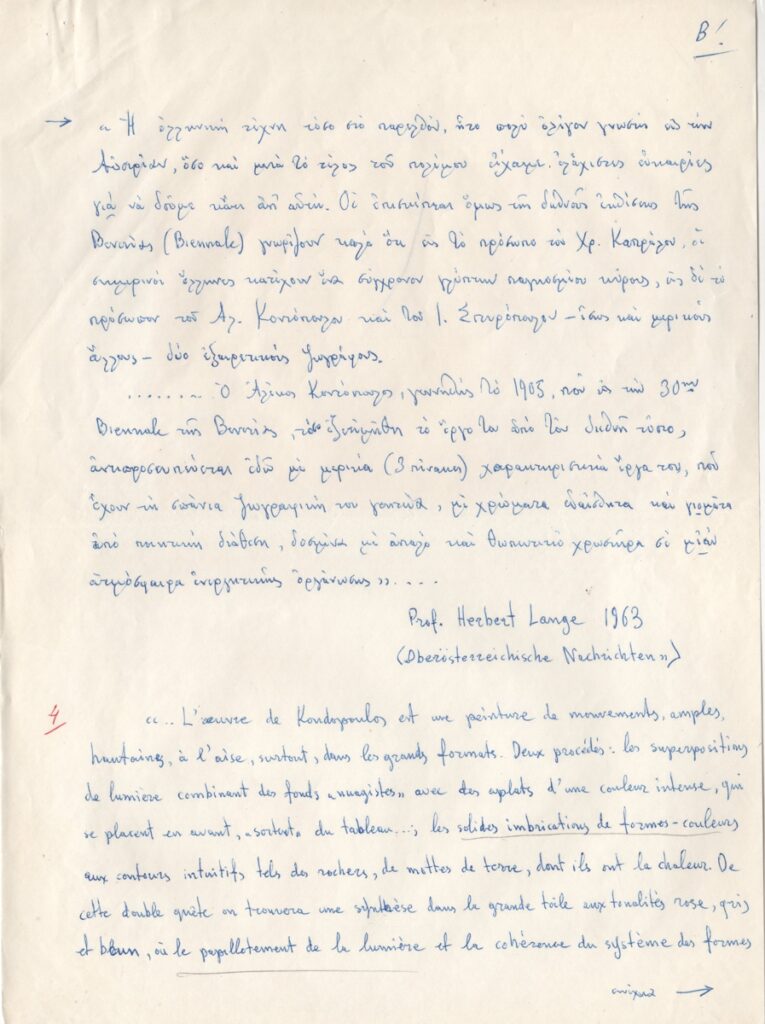 Β!
→ « Ἡ ἑλληνικὴ τέχνη τόσο στὸ παρελθὸν, ἦτο πολὺ ὀλίγον γνωστὴ εἰς τὴν
Αὐστρίαν, ὅσο καὶ μετὰ τὸ τέλος τοῦ πολέμου εἴχαμε ἐλάχιστες εὐκαιρίες
γιὰ νὰ δοῦμε κάτι ἀπ' αὐτήν. Οἱ ἐπισκέπται ὅμως τῆς διεθνοῦς ἐκθέσεως τῆς
Βενετίας (Biennale) γνωρίζουν καλὰ ὅτι εἰς τὸ πρόσωπο τοῦ Χρ. Καπράλου, οἱ
σημερινοὶ ἕλληνες κατέχουν ἕνα σύγχρονον γλύπτην παγκοσμίου κύρους, εἰς δὲ τὸ
πρόσωπον τοῦ Αλ. Κοντόπουλου καὶ τοῦ Ι. Σπυρόπουλου – ἴσως καὶ μερικοὺς
ἄλλους – δύο ἐξαιρετικοὺς ζωγράφους.
........ Ὁ Ἀλέκος Κοντόπουλος, γεννηθεὶς τὸ 1905, ποὺ εἰς τὴν 30ην
Biennale τῆς Βενετίας, τόσο ἐξετιμήθη τὸ ἔργο του ἀπὸ τὸν διεθνῆ τύπο,
ἀντιπροσωπεύεται ἐδῶ μὲ μερικὰ (3 πίνακες) χαρακτηριστικὰ ἔργα του, ποὺ
ἔχουν τὴ σπάνια ζωγραφικὴ του γοητεία, μὲ χρώματα εὐαίσθητα καὶ γιομάτα
ἀπὸ ποιητικὴ διάθεση, δοσμένα μὲ ἁπαλὸ καὶ θωπευτικὸ χρωστῆρα σὲ μίαν
ἀτμόσφαιρα ἐνεργητικῆς ὀργάνωσης »....
Prof. Herbert Lange 1963
(Oberösterreichische Nachrichten»)
4 «.. L'œuvre de Kondopoulos est une peinture de mouvements, amples,
hautaines, à l'aise, surtout, dans les grands formats. Deux procédés: les superpositions
de lumière combinant des fonds «nuagistes» avec des aplats d'une couleur intense, qui
se placent en avant, «sortent» du tableau...; les solides imbrications de formes-couleurs
aux contours intuitifs tels des rochers, de mottes de terre, dont ils ont la chaleur. De
cette double quête on trouvera une synthèse dans la grande toile aux tonalités rose, gris
et brun, où le papillotement de la lumière et la cohérence du système des formes
συνέχεια →